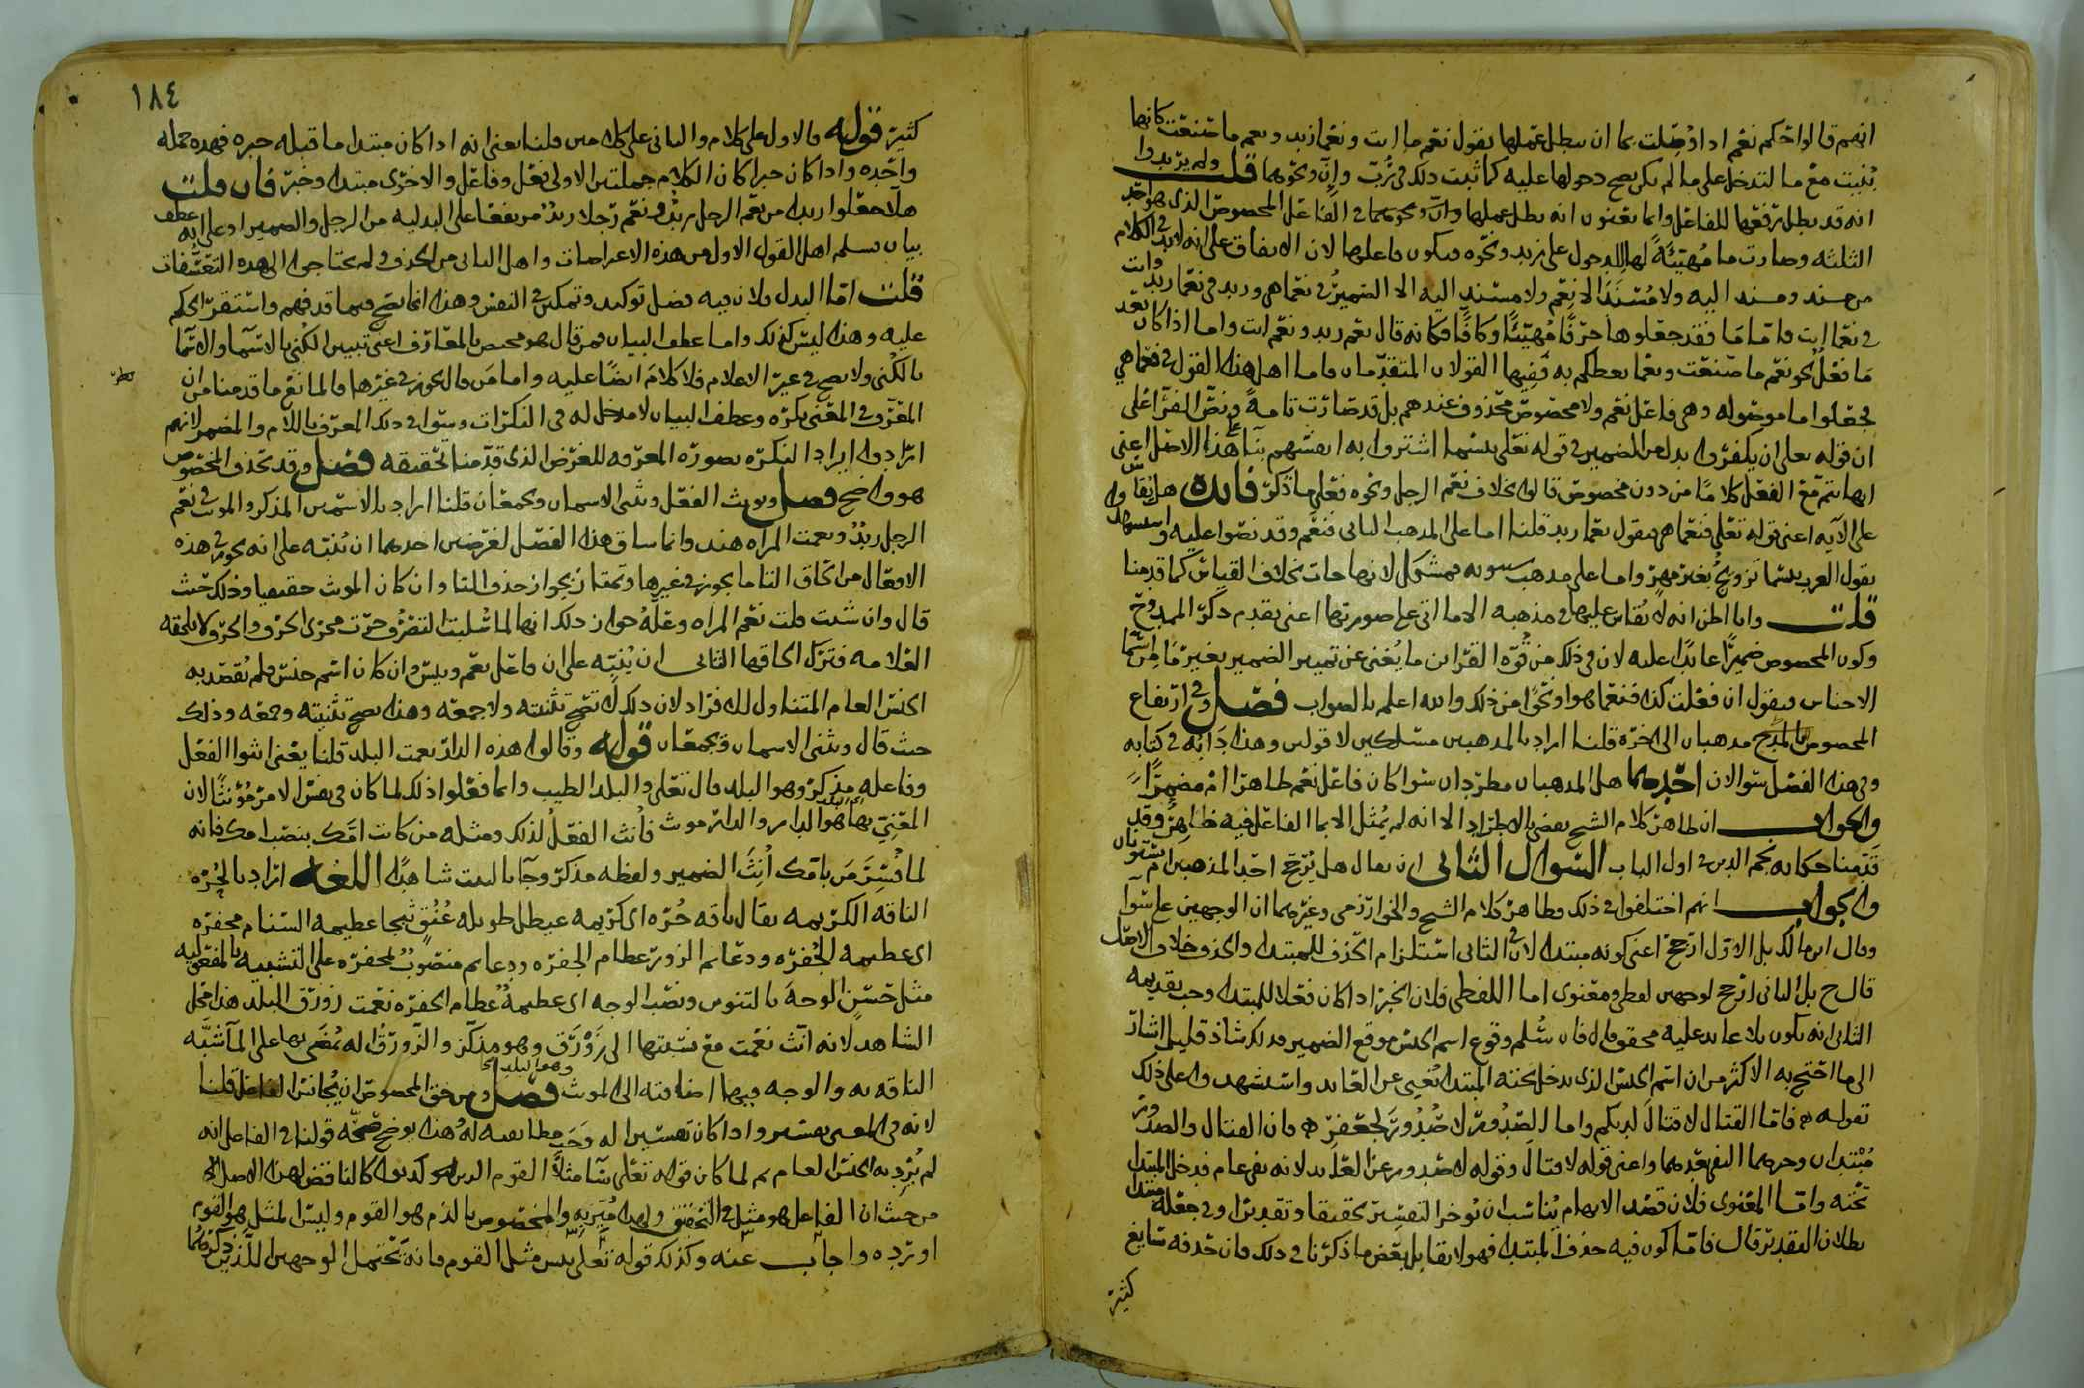 انهم قالوا حكم نعم اذا وصلت بما ان يبطل عملها يقول نعم ما انت ونعما زيد ونعم ما صنعت كانها
ثبت مع ما لتدخل على ما لم يكن يصح دخولها عليه كما ثبت ذلك في رب وان ونحوهما قلت ولم يريدوا
انه قد بطل رفعها للفاعل وانما يعنون انه بطل عملها في الفاعل المخصوص الذي هو احد
الثلثه وصارت ما مهيئة لها للدخول على زيد ونحوه فيكون فاعلها لان الاتفاق على انه لا بد في الكلام
من مسند ومسند اليه ولا مسند الا نعم ولا مسند اليه الا الضمير في نعما هي وزيد في نعما زيد وانت
في نعما انت واما ما فقد جعلوها حرفا مهيئا وكافا فكانه قال نعم زيد ونعم انت واما اذا كان بعد
ما فعل نحو نعم ما صنعت ونعما يعظكم به ففيها القولان المتقدمان واما اهل هذا القول في نعما هي
فجعلوا ما موصوله وهي فاعل نعم ولا مخصوص محذوف عندهم بل قد صارت تامة ونص الفرا على
ان قوله تعالى ان يكفروا بدل من الضمير في قوله تعالى بئسما اشتروا به انفسهم بنا على هذا الاصل اعني
انها تتم مع الفعل كلاما من دون مخصوص قالوا بخلاف نعم الرجل ونحوه فعلى ما ذكر فائدة هل يقاس
على الايه اعني قوله تعالى فنعما هي فيقول نعما زيد قلنا اما على المذهب الثاني فنعم وقد نصوا عليه
بقول العرب بئسما تزويج بغير مهر واما على مذهب سيبويه فمشكل لانها جات بخلاف القياس كما قدمنا
قلت وانا اظن انه لا يقاس عليها في مذهبه الا ما اتى على صورتها اعني تقدم ذكر الممدوح
وكون المخصوص ضميرا عائدا عليه لان في ذلك من قوة القراين ما يغني عن تمييز الضمير بغير ما من اسما
الاجناس فيقول ان فعلت كذا فنعما هو او نحوا من ذلك والله اعلم بالصواب فصل وفي ارتفاع
المخصوص بالمدح مذهبان الى اخره قلنا اراد بالمذهبين مسلكين لا قولين وهذا دابه في كتابه
وفي هذا الفصل سوالان احدهما هل المذهبان مطردان سوا كان فاعل نعم ظاهرا ام مضمرا
والجواب ان ظاهر كلام الشيخ يقضي بالاطراد الا انه لم يمثل الا بما الفاعل فيه ظاهر وقد
قدمنا حكايه نجم الدين في اول الباب السوال الثاني ان يقال هل يرجح احد المذهبين ام يستويان
والجواب انهم اختلفوا في ذلك فظاهر كلام الشيخ والخوارزمي وغيرهما ان الوجهين على سوا
وقال ابن مالك بل الاول ارجح اعني كونه مبتدا لان في الثاني استلزام الحذف للمبتدا والحذف خلاف الاصل
قال ح بل الثاني ارجح لوجهين لفظي ومعنوي اما اللفظي فلان الخبر اذا كان فعلا للمبتدا وجب تقديمه
الثاني انه يكون بلا عايد عليه محقق قال فان سلم وقوع اسم الجنس موقع الضمير فذلك شاذ قليل الشاذ
الى ما احتج به الاكثر من ان اسم الجنس الذي يدخل تحته المبتدا يغني عن العايد واستشهدوا على ذلك
بقوله فاما القتال لا قتال لديكم واما الصدور لا صدور لجعفر فان القتال والصدور
مبتدان وخبرهما النفي بعدهما واغنى قوله لا قتال وقوله لا صدور عن العايد لانه نفي عام فدخل المبتدا
تحته واما المعنوي فلان قصد الابهام يناسب ان يوخر التفسير تحقيقا وتقديرا وفي جعله مبتدا
بطلان التقدير قال فاما كون فيه حذف المبتدا فهو لا يقابل بعض ما ذكرنا في ذلك فان حذفه شايع
كثير
١٨٤
كثير قوله فالاول على كلام والثاني على كلامين قلنا يعني انه اذا كان مبتدا ما قبله خبره فهذه جمله
واحده واذا كان خبرا كان الكلام جملتين الاولى فعل وفاعل والاخرى مبتدا وخبر فان قلت
هلا جعلوا زيدا من نعم الرجل زيد ونعم رجلا زيد مرتفعا على البدليه من الرجل والضمير او على انه عطف
بيان فسلم اهل القول الاول من هذه الاعتراضات واهل الثاني من الحذف ولم يحتاجوا الى هذه التعسفات
قلت اما البدل فلان فيه فضل توكيد وتمكين في النفس وهذا انما يصح فيما قد فهم واستقر الحكم
عليه وهذا ليس كذلك واما عطف البيان فمن قال هو مختص بالمعارف اعني تبيين الكنى بالاسما والاسما
بالكنى ولا يصح في غير الاعلام فلا كلام ايضا عليه واما من قال يجوز في غيرها فالمانع ما قدمنا من ان
المعرف في المعنى نكره وعطف البيان لا مدخل له في النكرات وسوا في ذلك المعرف باللام والمضمر لانهم
ارادوا ايراد النكره بصوره المعرفه للغرض الذي قدمنا تحقيقه فصل وقد يحذف المخصوص
هو واضح فصل ويونث الفعل ويثنى الاسمان ويجمعان قلنا اراد بالاسمين المذكر والمونث في نعم
الرجل زيد ونعمت المراه هند وانما ساق هذا الفصل لغرضين احدهما ان ينبه على انه يجوز في هذه
الافعال من الحاق التا ما يجوز في غيرها وتمتاز بجواز حذف التا وان كان المونث حقيقيا وذلك حيث
قال وان شئت قلت نعم المراه وعلة جواز ذلك انها لما سلبت التصرف جرت مجرى الحرف والحرف لا تلحقه
العلامه فترك الحاقها الثاني ان ينبه على ان فاعل نعم وبئس وان كان اسم جنس فلم يقصد به
الجنس العام المتناول للافراد لان ذلك لا تصح تثنيته ولا جمعه وهذا يصح تثنيته وجمعه وذلك
حيث قال ويثنى الاسمان ويجمعان قوله وقالوا هذه الدار نعمت البلد قلنا يعني انثوا الفعل
وفاعله مذكر وهو البلد قال تعالى والبلد الطيب وانما فعلوا ذلك لما كان في نفس الامر مؤنثا لان
المعني بهذا البلد هو الدار والدار مونث فانث الفعل لذلك ومثله من كانت امك بنصب امك فانه
لما فسر من بامك انث الضمير ولفظه مذكر وجا بالبيت شاهدا اللغه اراد بالحره
الناقه الكريمه يقال ناقه حره اي كريمه عيطل طويله عنق ثبجا عظيمه السنام مجفره
اي عظيمه الجفره ودعايم الزور عظام الجفره ودعايم منصوب لمجفره على التشبيه بالمفعوليه
مثل حسن الوجه بالتنوين ونصب الوجه اي عظيمة عظام الجفره نعمت زورق البلد هذا محل
الشاهد لانه انث نعمت مع نسبتها الى زورق وهو مذكر والزورق اله يمضى بها على الما شبه
الناقه به والوجه فيها اضافته الى المونث وهو البلد فصل ومن حق المخصوص ان يجانس الفاعل قلنا
لانه في المعنى تفسير واذا كان تفسيرا له وجب مطابقته له وهذا يوضح صحة قولنا في الفاعل انه
لم يرد به الجنس العام ثم لما كان قوله تعالى سا مثلا القوم الذين كذبوا كالناقض لهذا الاصل
من حيث ان الفاعل هو مثل في التحقيق ولهذا ميز به والمخصوص بالذم هو القوم وليس المثل هو القوم
اورده واجاب عنه وكذلك قوله تعالى بئس مثل القوم فانه يحتمل الوجهين اللذين ذكرهما